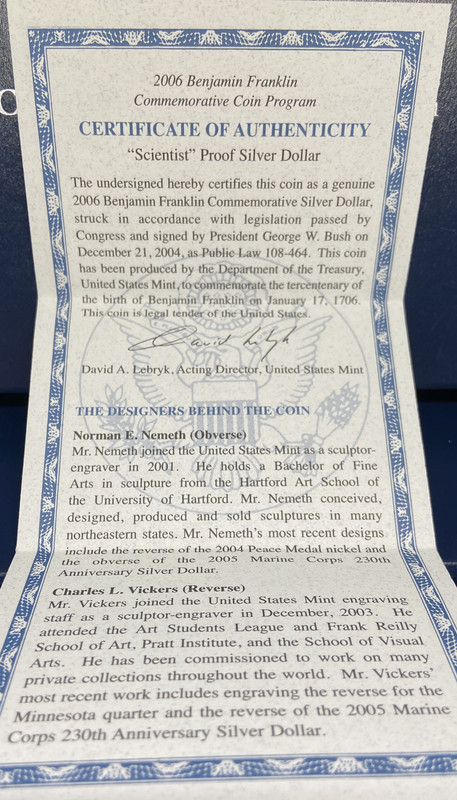 2006 Benjamin Franklin
Commemorative Coin Program
CERTIFICATE OF AUTHENTICITY
“Scientist” Proof Silver Dollar
The undersigned hereby certifies this coin as a genuine
2006 Benjamin Franklin Commemorative Silver Dollar,
struck in accordance with legislation passed by
Congress and signed by President George W. Bush on
December 21, 2004, as Public Law 108-464. This coin
has been produced by the Department of the Treasury,
United States Mint, to commemorate the tercentenary of
the birth of Benjamin Franklin on January 17, 1706.
This coin is legal tender of the United States.
David A. Lebryk, Acting Director, United States Mint
THE DESIGNERS BEHIND THE COIN
Norman E. Nemeth (Obverse)
Mr. Nemeth joined the United States Mint as a sculptor-
engraver in 2001. He holds a Bachelor of Fine
Arts in sculpture from the Hartford Art School of
the University of Hartford. Mr. Nemeth conceived,
designed, produced and sold sculptures in many
northeastern states. Mr. Nemeth’s most recent designs
include the reverse of the 2004 Peace Medal nickel and
the obverse of the 2005 Marine Corps 230th
Anniversary Silver Dollar.
Charles L. Vickers (Reverse)
Mr. Vickers joined the United States Mint engraving
staff as a sculptor-engraver in December, 2003. He
attended the Art Students League and Frank Reilly
School of Art, Pratt Institute, and the School of Visual
Arts. He has been commissioned to work on many
private collections throughout the world. Mr. Vickers’
most recent work includes engraving the reverse for the
Minnesota quarter and the reverse of the 2005 Marine
Corps 230th Anniversary Silver Dollar.